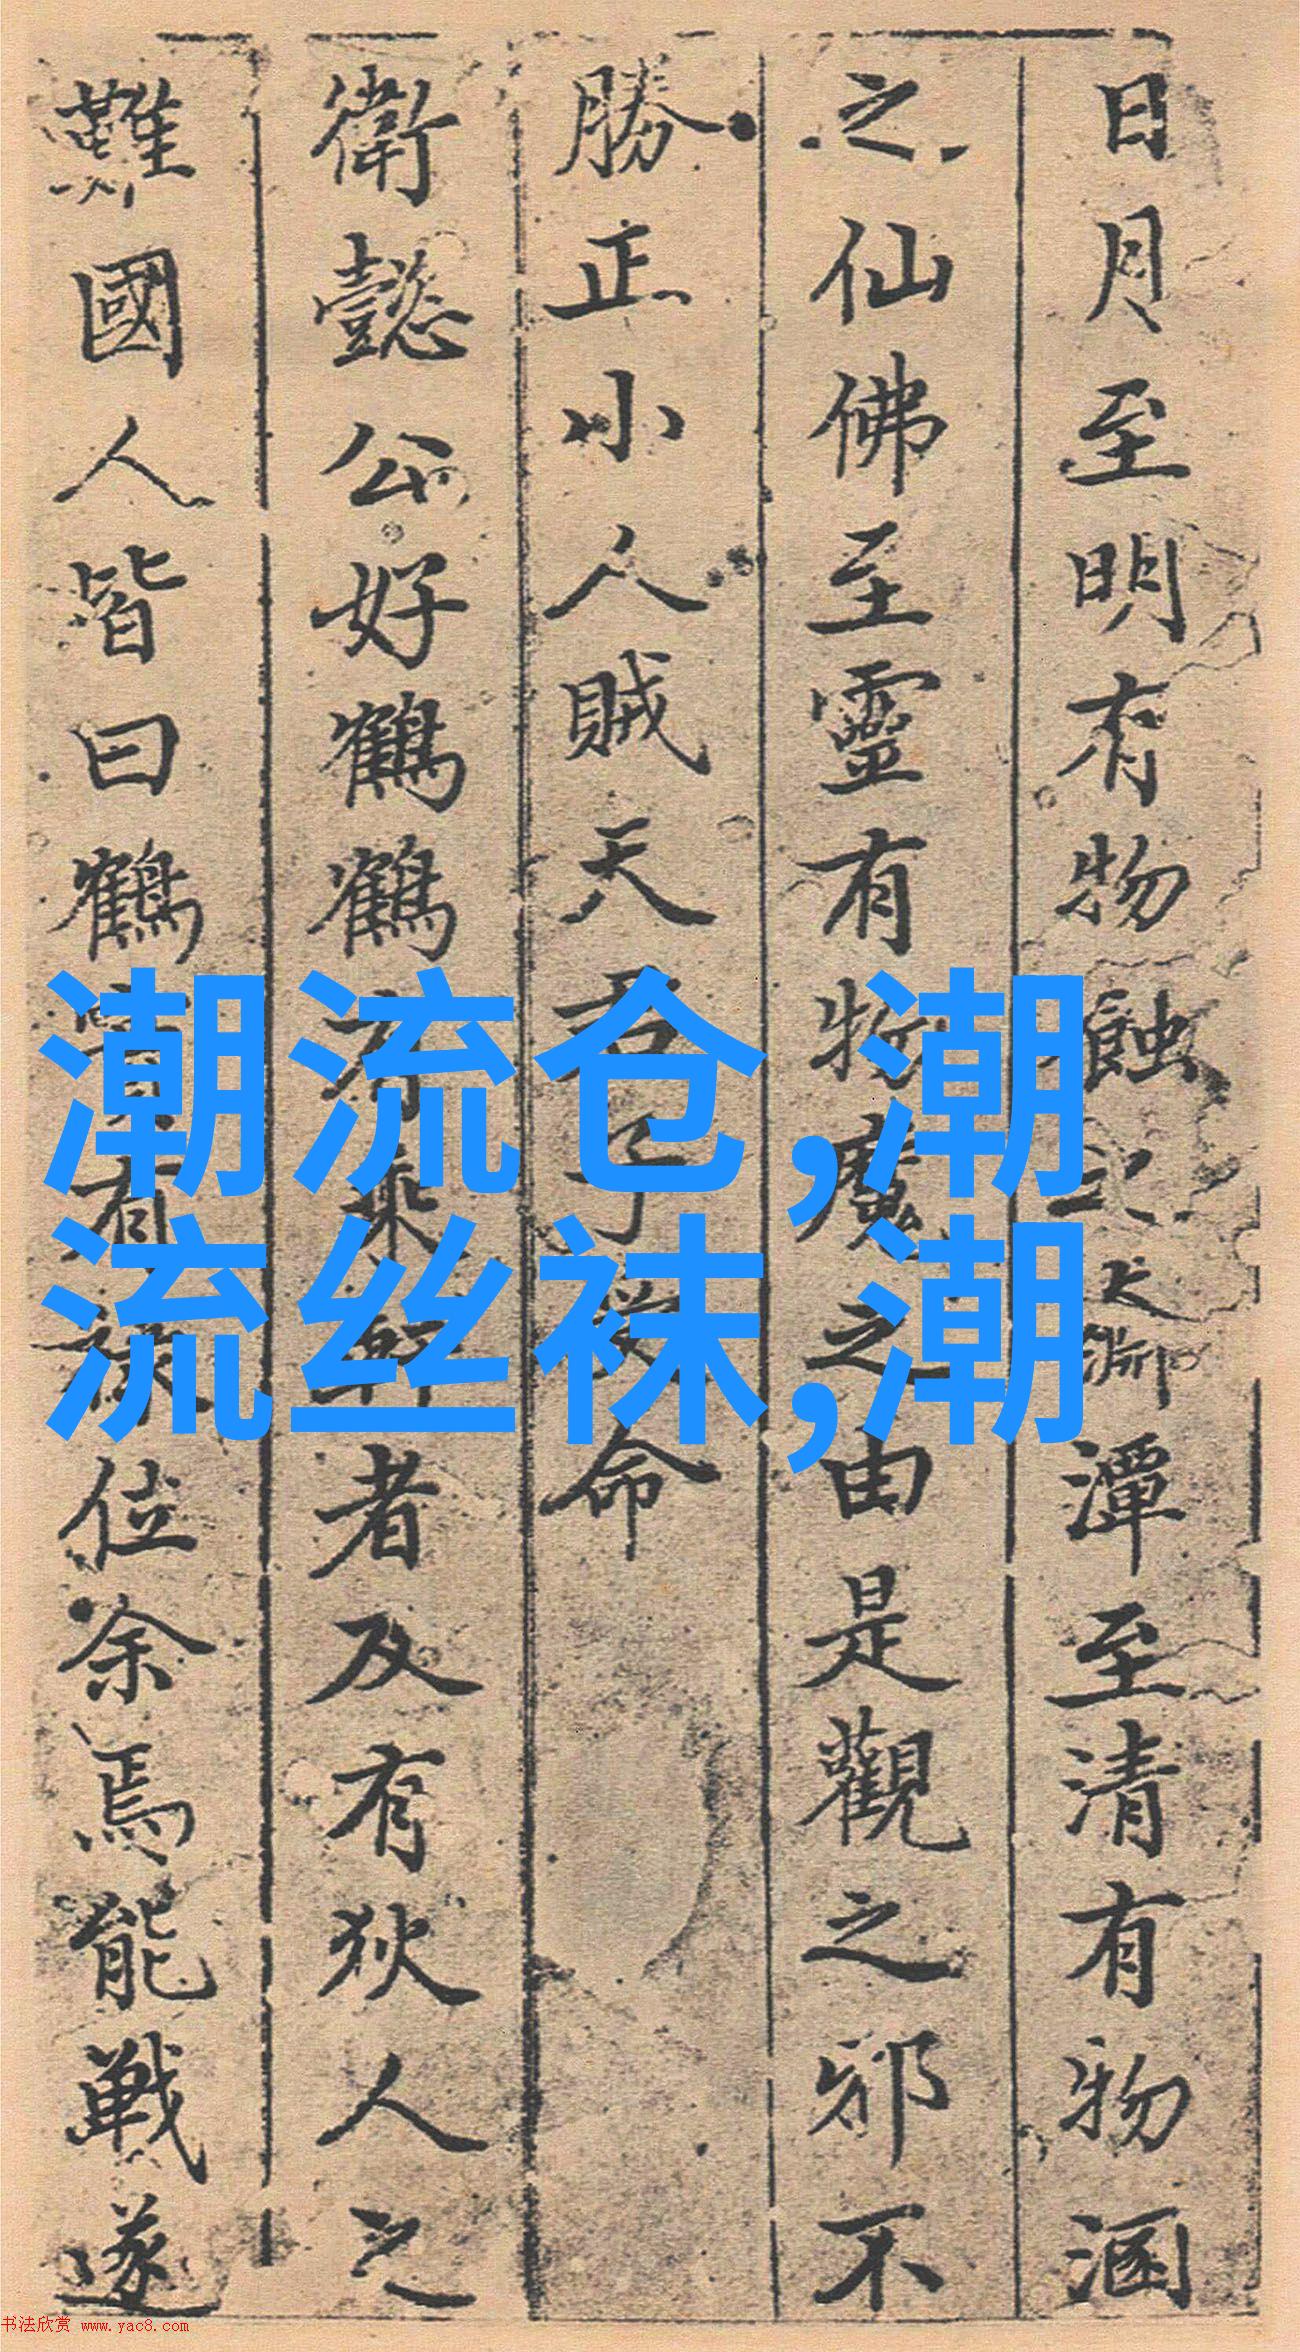 日月至明有物蝕之大淵潭至清有物涵
之仙佛至靈有物魔之由是觀之邪不
勝正小人賊天君子命
衛懿公好鶴鶴有乘軒者及有狄人之
難國人皆曰鶴實有祿位余焉能戰遂
潮流仓,潮
流丝袜,潮
书法欣赏 www.yac8.com